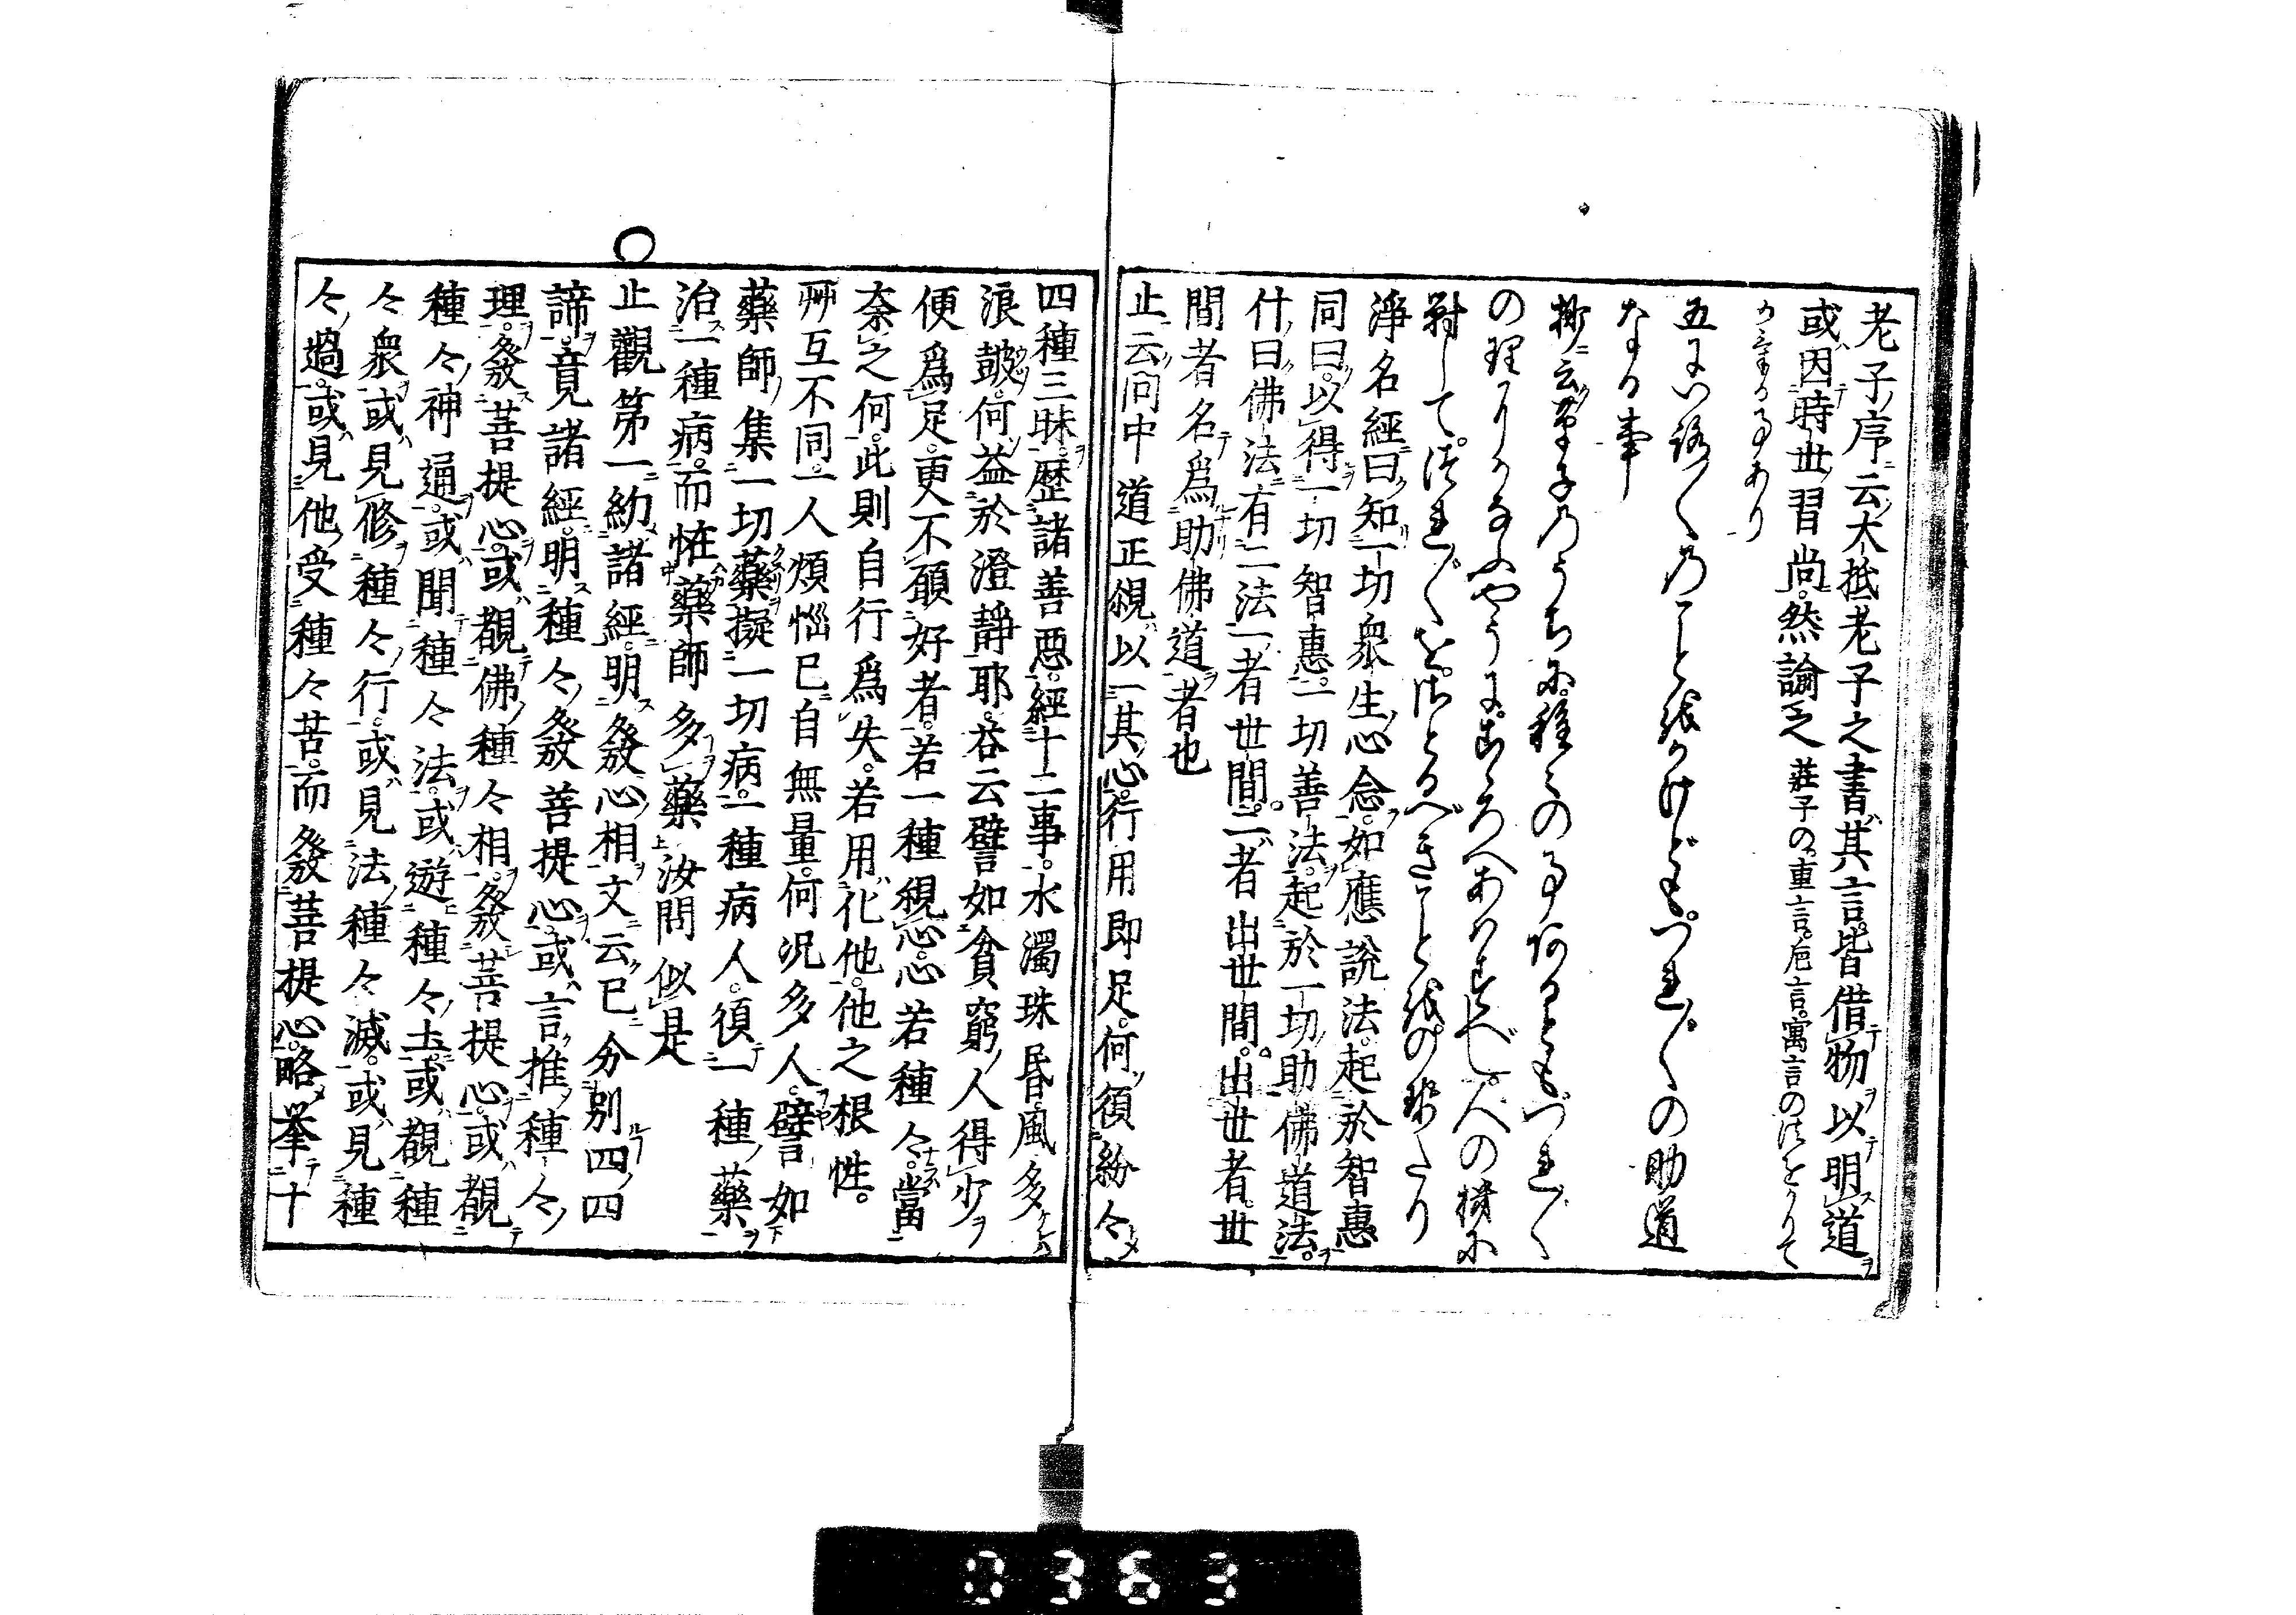 老子序云大抵老子之書其言皆借物以明道
或因時世習尚然諭之 莊子の重言巵言寓言の法をかりて
かきたる事あり
五には語〳〵のことばかけども つれ〴〵の助道
なる事
抑云草子のうちに種々の事あれども つれ〴〵
の理りかなふやうに
對して つれ〴〵を
淨名經曰知一切衆生心念如應說法起於智惠
同曰以得一切智惠一切善法起於一切助佛道法
什曰佛法有二法一者世間二者出世間出世者世
間者名爲助佛道者也
止云問中道正観以一其心行用即足何須紛々
四種三昧歷諸善惡經十二事水濁珠昏風多
浪皷何益於澄靜耶答云譬如貧窮人得少
便爲足更不願好者若一種観心心若種々當
奈之何此則自行爲失若用化他他之根性
舛互不同一人煩惱已自無量何况多人譬如
藥師集一切藥擬一切病一種病人須一種藥
治一種病而恠藥師多藥汝問似是
止觀第一約諸經明發心相文云已分別四四
諦竟見諸經明種々發菩提心或言推種々
理發菩提心或覩佛種々相發菩提心或覩
種々神通或聞種々法或遊種々土或覩種
々衆或見修種々行或見法種々滅或見種
々過或見他受種々苦而發菩提心略挙十
0363